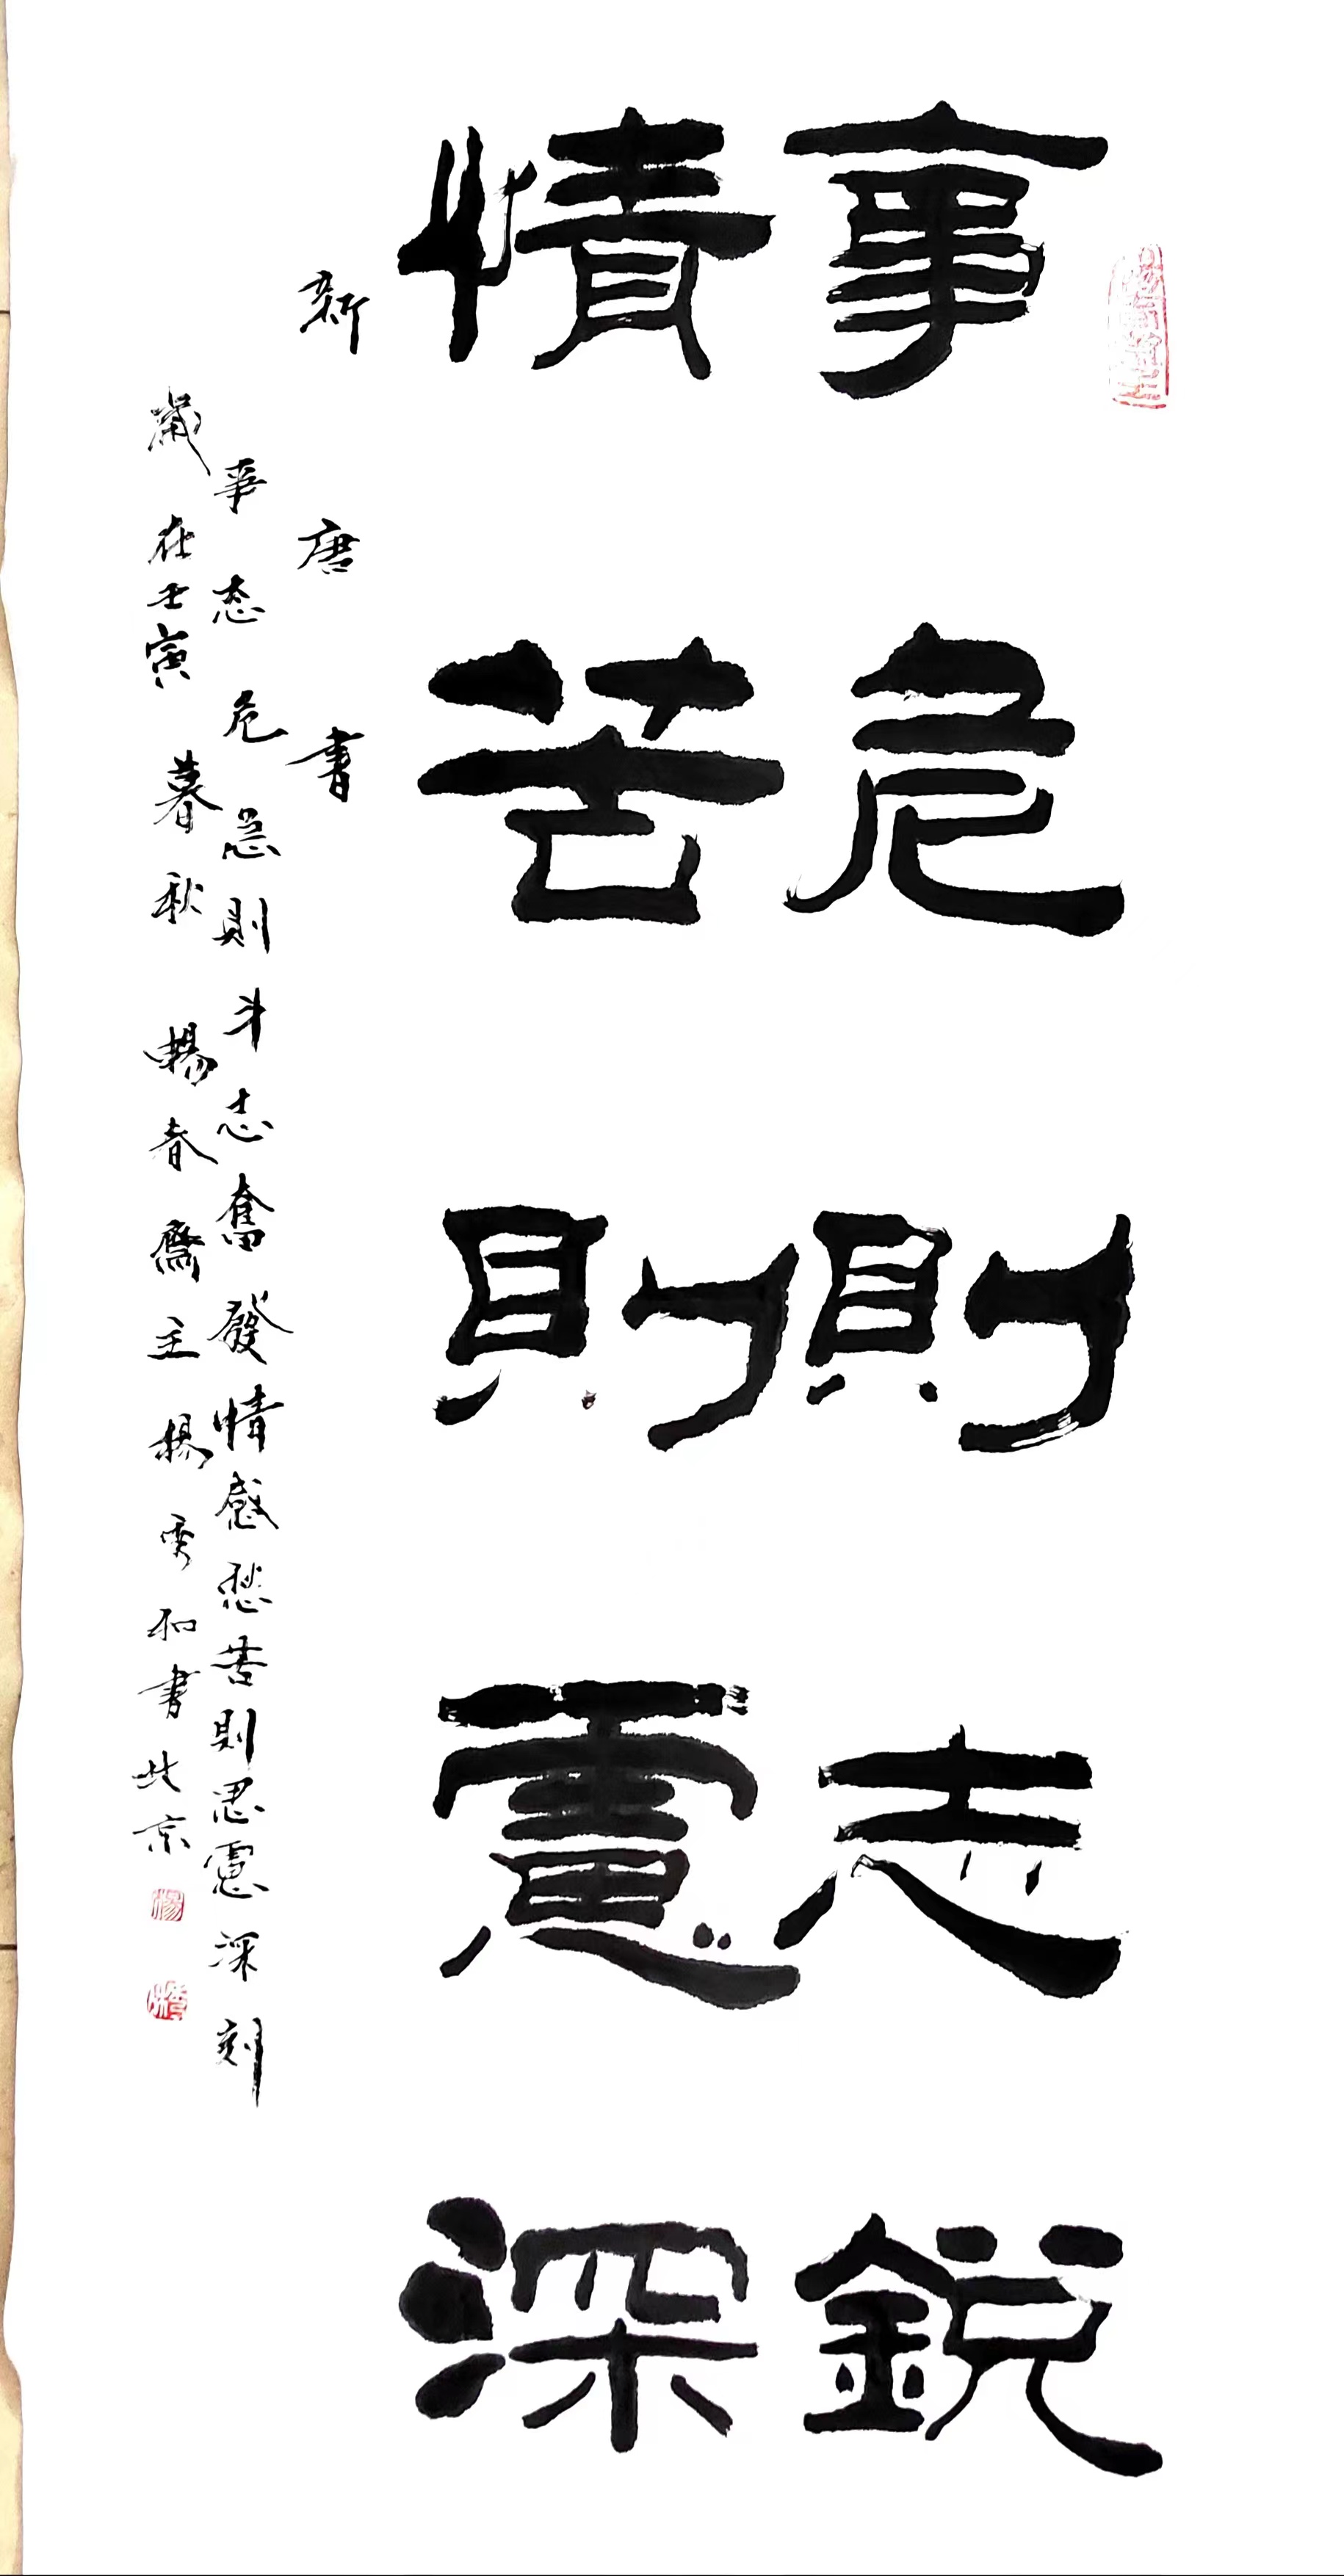 事危則志銳
情苦則慮深
新唐書
事态危急則斗志奮發情感愁苦則思慮深刻
歲在壬寅暮秋暢春齋主楊雲和書北京